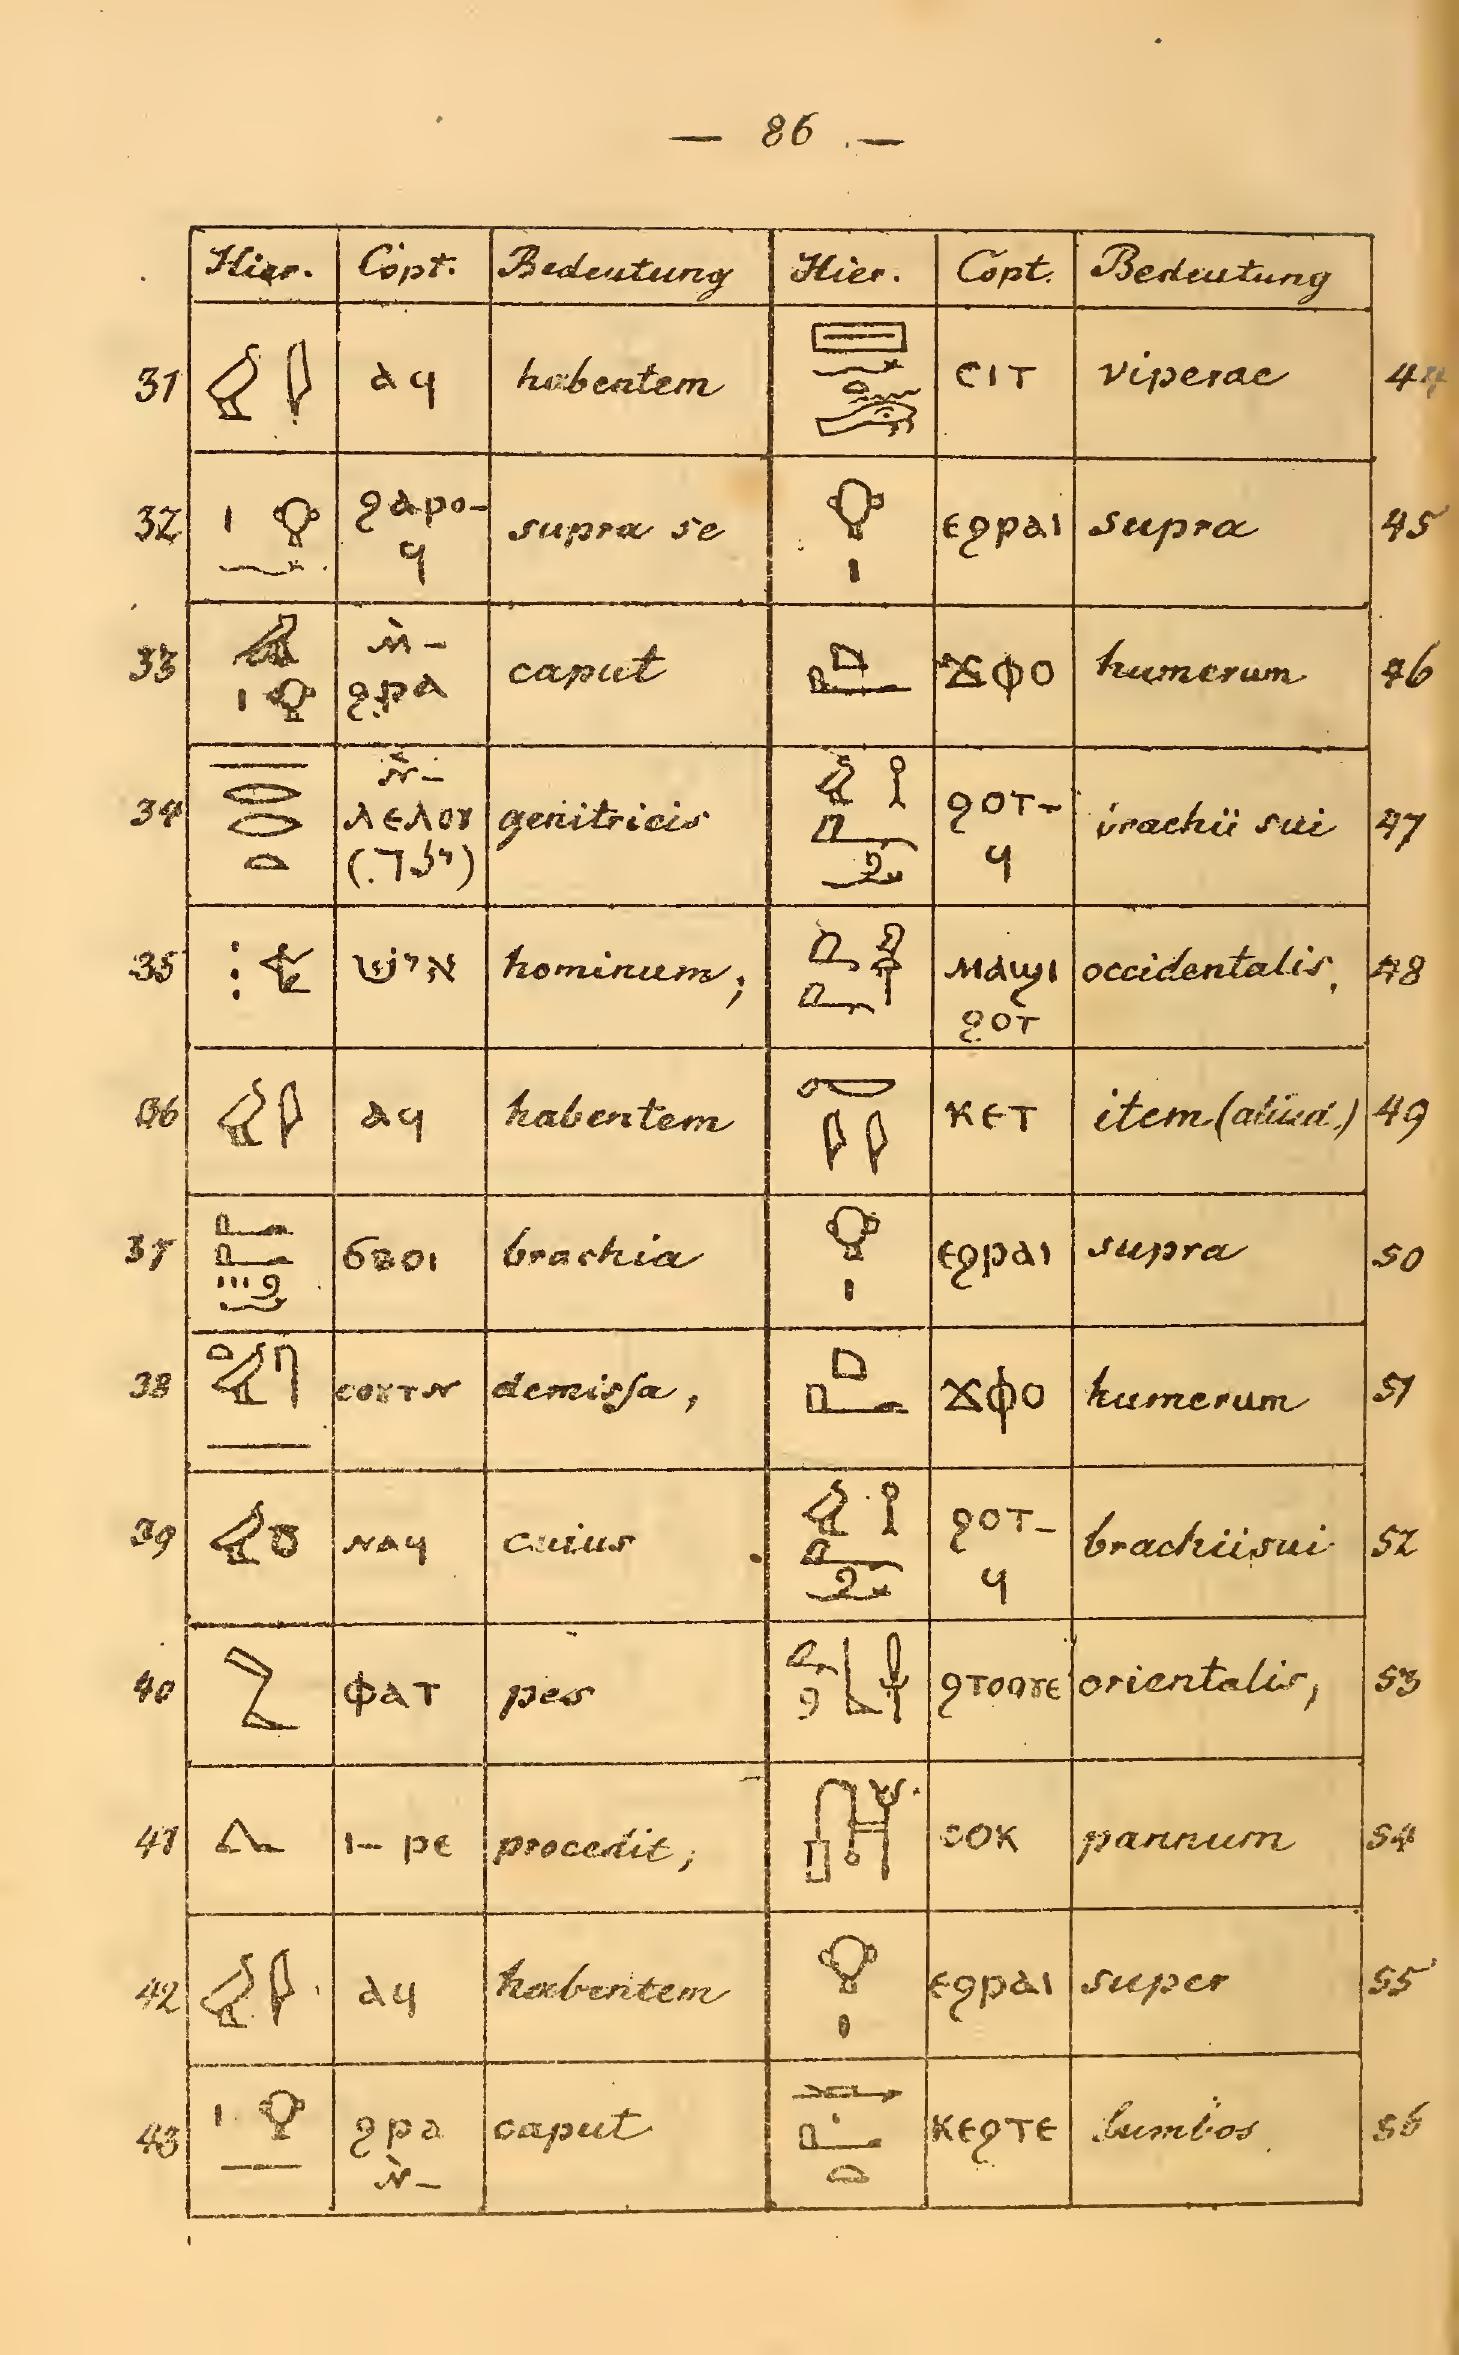 — 86 —
Hier. Copt. Bedeutung Hier. Copt. Bedeutung
31 ⲁϥ habentem ⲥⲓⲧ viperae 44
32 ϩⲁⲣⲟ-
ϥ supra se ⲉϩⲣⲁⲓ supra 45
33 ⲙ̀-
ϩⲣⲁ caput ϫⲫⲟ humerum 46
34 ⲛ̀-
ⲗⲉⲗⲟⲩ
(ילד.) genitricis ϩⲟⲧ-
ϥ brachii sui 47
35 איש hominum; ⲙⲁϣⲓ
ϩⲟⲧ occidentalis, 48
36 ⲁϥ habentem ⲕⲉⲧ item (aliud.) 49
37 ϭⲃⲟⲓ brachia ⲉϩⲣⲁⲓ supra 50
38 ⲥⲟⲩⲧⲛ demissa, ϫⲫⲟ humerum 51
39 ⲛⲁϥ cuius ϩⲟⲧ-
ϥ brachii sui 52
40 ⲫⲁⲧ pes ϩⲧⲟⲟⲩⲉ orientalis, 53
41 ⲓ- ⲣⲉ procedit; ⲥⲟⲕ pannum 54
42 ⲁϥ habentem ⲉϩⲣⲁⲓ super 55
43 ϩⲣⲁ
ⲛ̀- caput ⲕⲉϩⲧⲉ lumbos 56